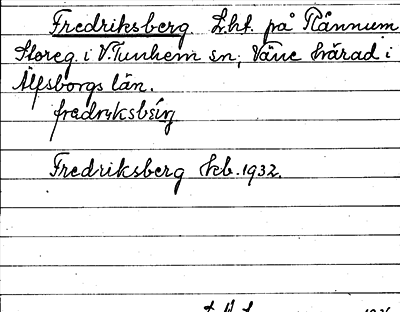 Fredriksberg. Lht. på Rånnum
Storeg. i V. Tunhem sn, Väne härad i
Älfsborgs län.
fradrıksbärj
Fredriksberg kb. 1932.